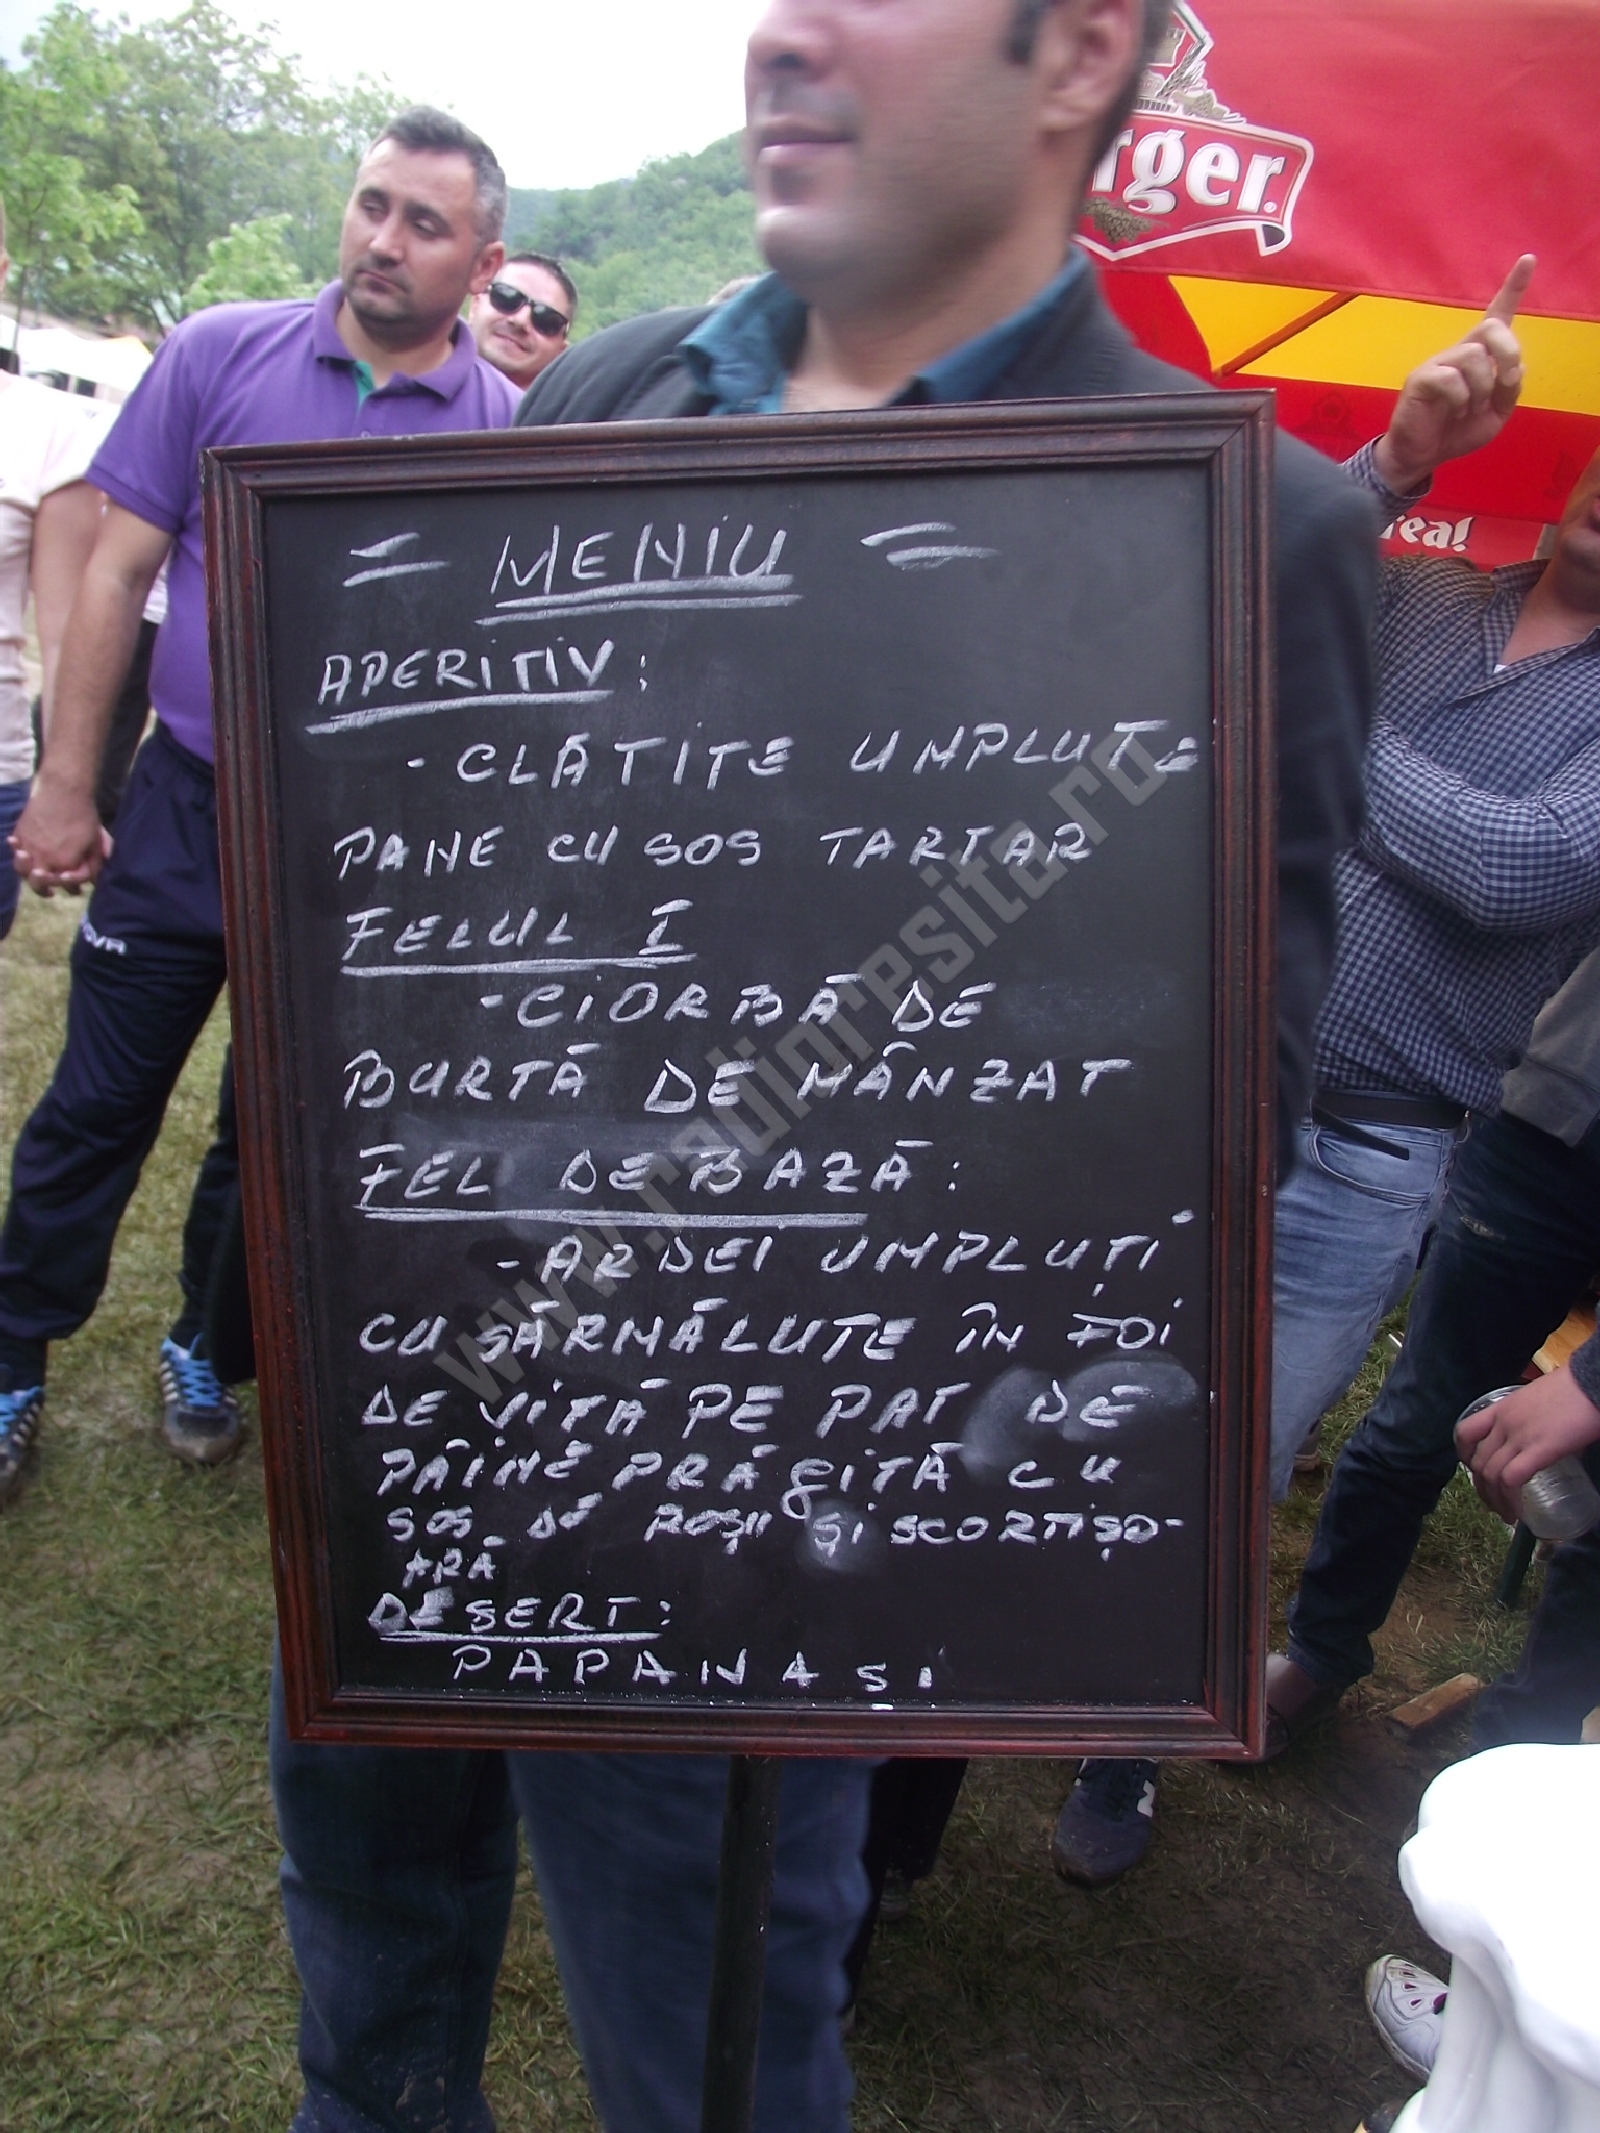 = MENIU =
APERITIV:
- CLĂTITE UMPLUTE
PANE CU SOS TARTAR
FELUL I
- CIORBĂ DE
BURTĂ DE MÂNZAT
FEL DE BAZĂ:
- ARDEI UMPLUȚI
CU SĂRMĂLUTE ÎN FOI
DE VIȚĂ PE PAT DE
PÂINE PRĂGITĂ CU
SOS DE ROȘII ȘI SCORTIȘO-
ARĂ
DESERT:
PAPANAȘI
www.radioresita.ro
rger.
rea!